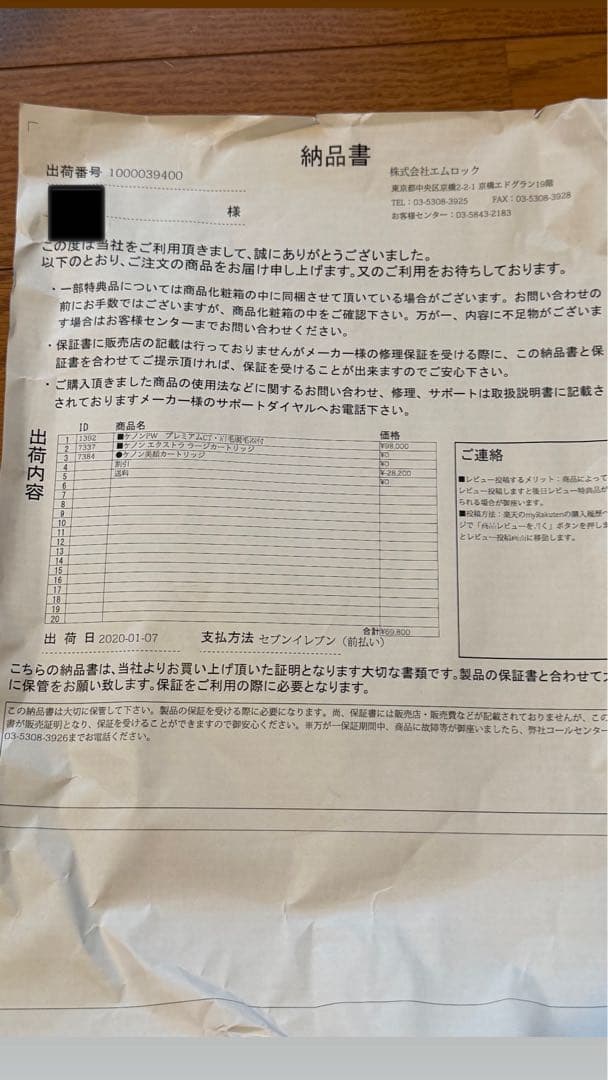 納品書
出荷番号 1000039400
様
株式会社エムロック
東京都中央区京橋2-2-1 京橋エドグラン19階
TEL：03-5308-3925 FAX：03-5308-3928
お客様センター：03-5843-2183
この度は当社をご利用頂きまして、誠にありがとうございました。
以下のとおり、ご注文の商品をお届け申し上げます。又のご利用をお待ちしております。
・一部特典品については商品化粧箱の中に同梱させて頂いている場合がございます。お問い合わせの
前にお手数ではございますが、商品化粧箱の中をご確認下さい。万が一、内容に不足物がございま
す場合はお客様センターまでお問い合わせください。
・保証書に販売店の記載は行っておりませんがメーカー様の修理保証を受ける際に、この納品書と保
証書を合わせてご提示頂ければ、保証を受けることが出来ますのでご安心下さい。
・ご購入頂きました商品の使用法などに関するお問い合わせ、修理、サポートは取扱説明書に記載さ
されておりますメーカー様のサポートダイヤルへお電話下さい。
出荷内容
ID 商品名 価格
1 1392 ■ケノンPW プレミアムCT・眉毛脱毛添付 ¥98,000
2 7337 ■ケノン エクストララージカートリッジ ¥0
3 7384 ●ケノン美顔カートリッジ ¥0
4 割引 ¥-28,200
5 送料 ¥0
6
7
8
9
10
11
12
13
14
15
16
17
18
19
20
合計 ¥69,800
ご連絡
■レビュー投稿するメリット：商品によって
レビュー投稿しますと後日レビュー特典品が
られる場合が御座います。
■投稿方法：楽天のmyRakutenの購入履歴
ジで「商品レビューを書く」ボタンを押しま
とレビュー投稿画面に移動します。
出荷日 2020-01-07 支払方法 セブンイレブン（前払い）
こちらの納品書は、当社よりお買い上げ頂いた証明となります大切な書類です。製品の保証書と合わせて
に保管をお願い致します。保証をご利用の際に必要となります。
この納品書は大切に保管して下さい。製品の保証を受ける際に必要になります。尚、保証書には販売店・販売費などが記載されておりませんが、この
書が販売証明となり、保証を受けることができますので御安心ください。※万が一保証期間中、商品に故障等が御座いましたら、弊社コールセンター
03-5308-3926までお電話ください。